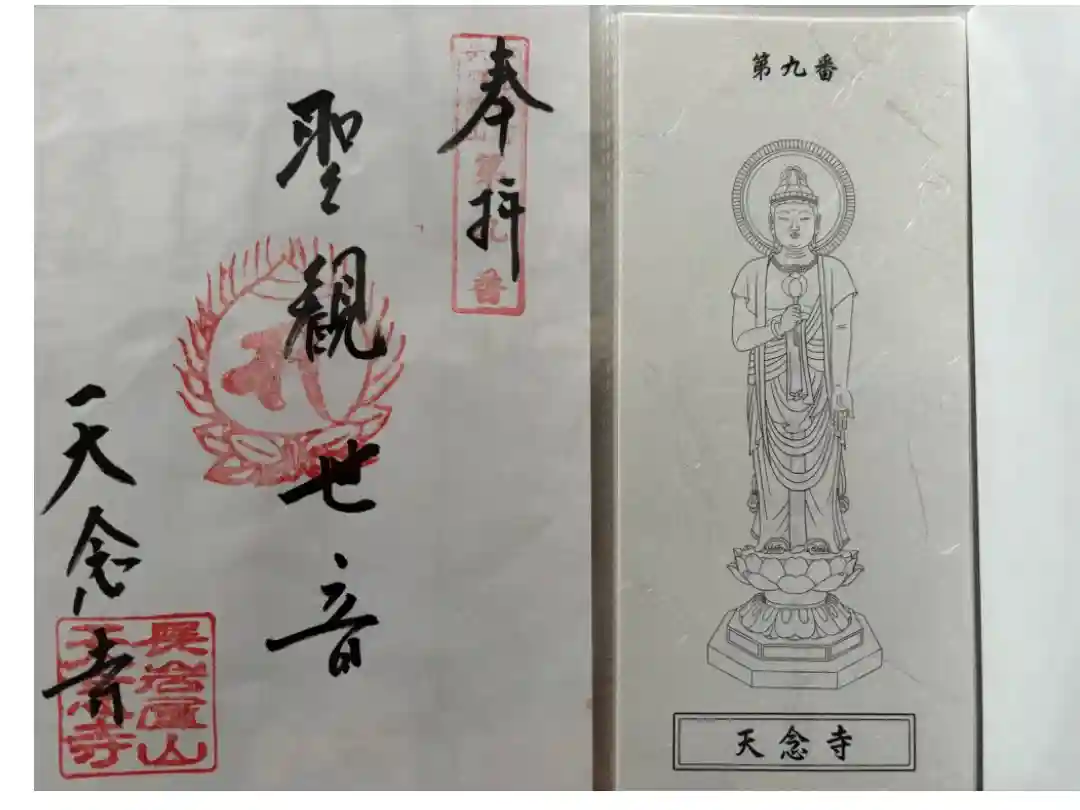 奉拝
第九番
聖観世音
天念寺
長岩屋山
天念寺
第九番
天念寺